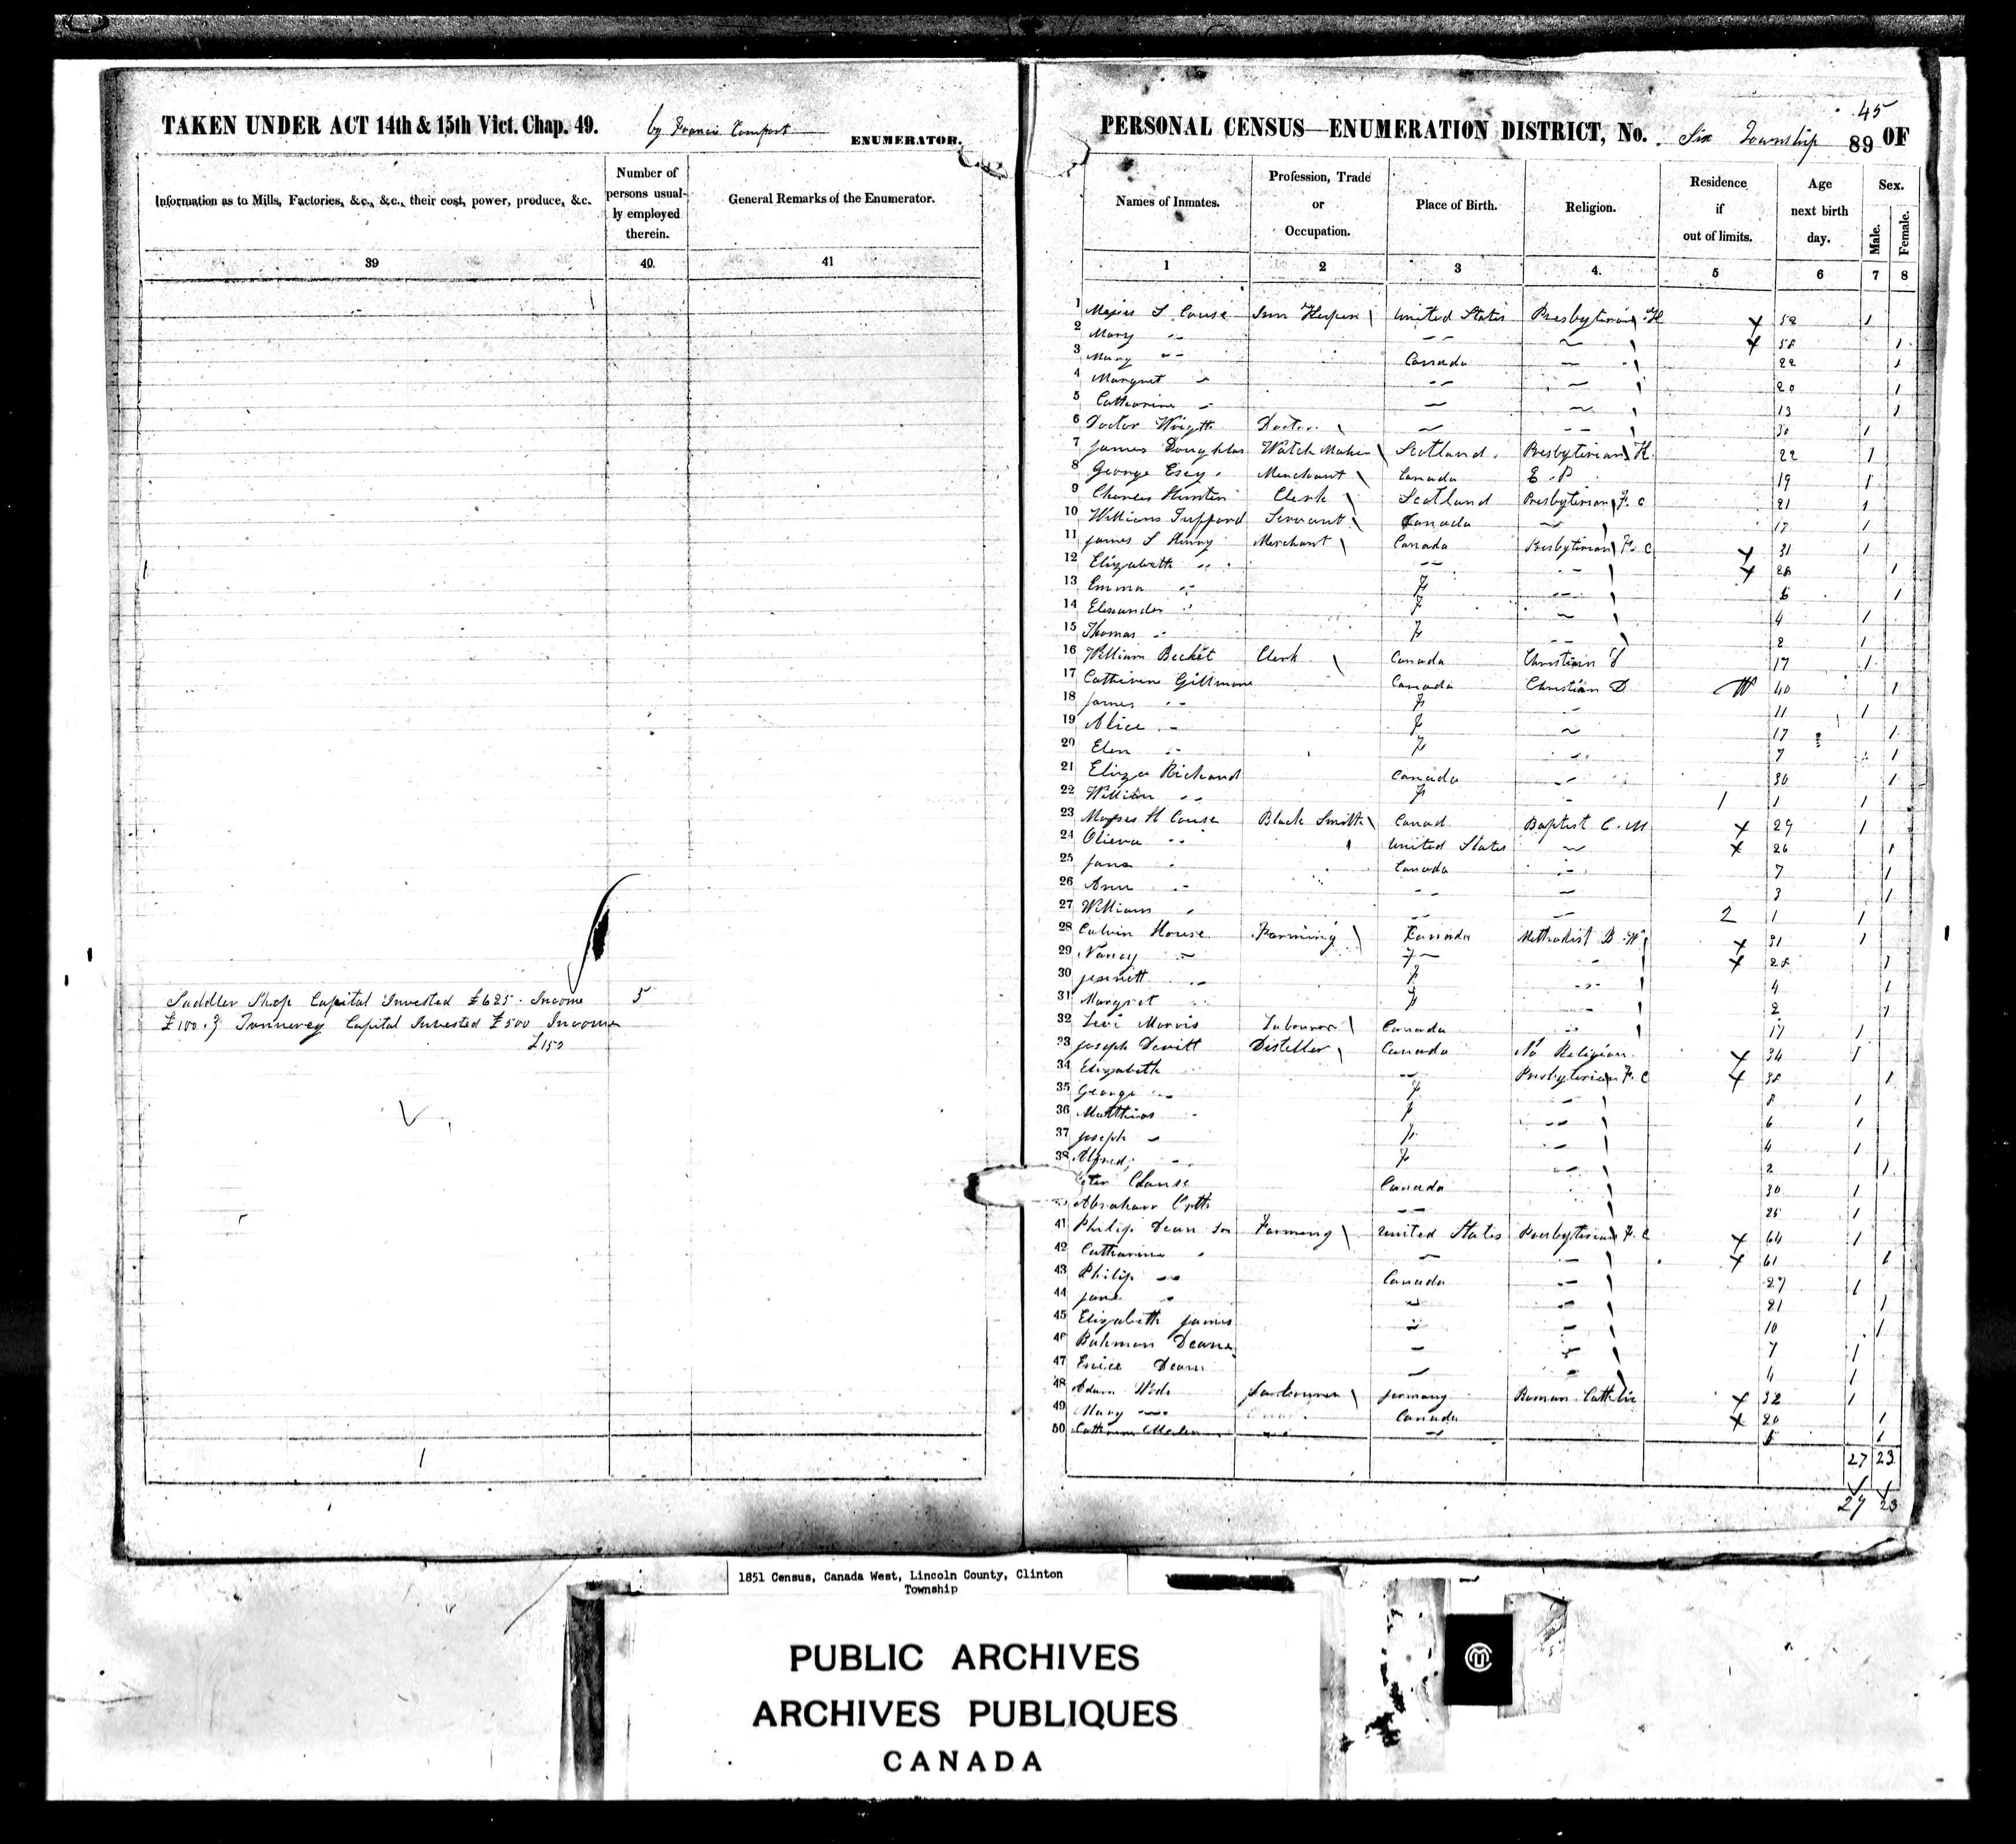 TAKEN UNDER ACT 14th & 15th Vict. Chap. 49. by Francis Comfort ENUMERATOR.
Information as to Mills, Factories, &c., &c., their cost, power, produce, &c.
Number of persons usually employed therein.
General Remarks of the Enumerator.
39 40. 41
Saddler Shop Capital Invested £625. Income 5
£100. & Tannerey Capital Invested £500 Income
£150
45
PERSONAL CENSUS—ENUMERATION DISTRICT, No. Six Township 89 OF
Names of Inmates.
Profession, Trade or Occupation.
Place of Birth.
Religion.
Residence if out of limits.
Age next birth day.
Sex.
Male.
Female.
1 2 3 4. 5 6 7 8
1 L Couse Inn Keeper United States Presbyterian 52 1
2 Mary " " " 1
3 Mary " Canada " 22 1
4 Margret " " " 20 1
5 Catharine " " " 13 1
6 Doctor Doctor " " 30 1
7 James Doughlas Watch Maker Scotland Presbyterian 22 1
8 George Esey Merchant Canada E. P 19 1
9 Charles Hunter Clerk Scotland Presbyterian F. C 21 1
10 William Servant Canada " 17 1
11 James S Henry Merchant Canada Presbyterian F. C 31 1
12 Elizabeth " " " 1
13 Emma " F " 1
14 Elexander " F " 4 1
15 Thomas " F " 2 1
16 William Becket Clerk Canada Christian 17 1
17 Gillmore Canada Christian D 40 1
18 James " F " 11 1
19 Alice " F " 17 1
20 Elen " F " 7 1
21 Eliza Richard Canada " 30 1
22 William " F " 1 1 1
23 H Couse Black Smith Canad Baptist C. M 29 1
24 " United States " 26 1
25 Jane " Canada " 7 1
26 Ann " " " 3 1
27 William " " " 2 1 1
28 Calvin House Farming Canada Methodist 31 1
29 Nancy " F " 1
30 " F " 4 1
31 Margret " F " 2 1
32 Levi Labourer Canada " 17 1
33 Joseph Devitt Distiller Canada No Religion 34 1
34 Elizabeth " Presbyterian F. C 1
35 George " F " 8 1
36 Matthias " F " 6 1
37 Joseph " F " 4 1
38 Alfred " F " 2 1
Canada " 30 1
Abraham " " 25 1
41 Philip Dean Farming United States Presbyterian F. C 64 1
42 Catharine " " " 61 1
43 Philip " Canada " 27 1
44 Jane " " " 21 1
45 Elizabeth James " " 10 1
46 " " 7 1
47 Dean " " 4 1
48 Adam Germany Roman Catholic 32 1
49 Mary " Canada 20 1
50 " 1
27 23
27 23
1851 Census, Canada West, Lincoln County, Clinton
Township
PUBLIC ARCHIVES
ARCHIVES PUBLIQUES
CANADA